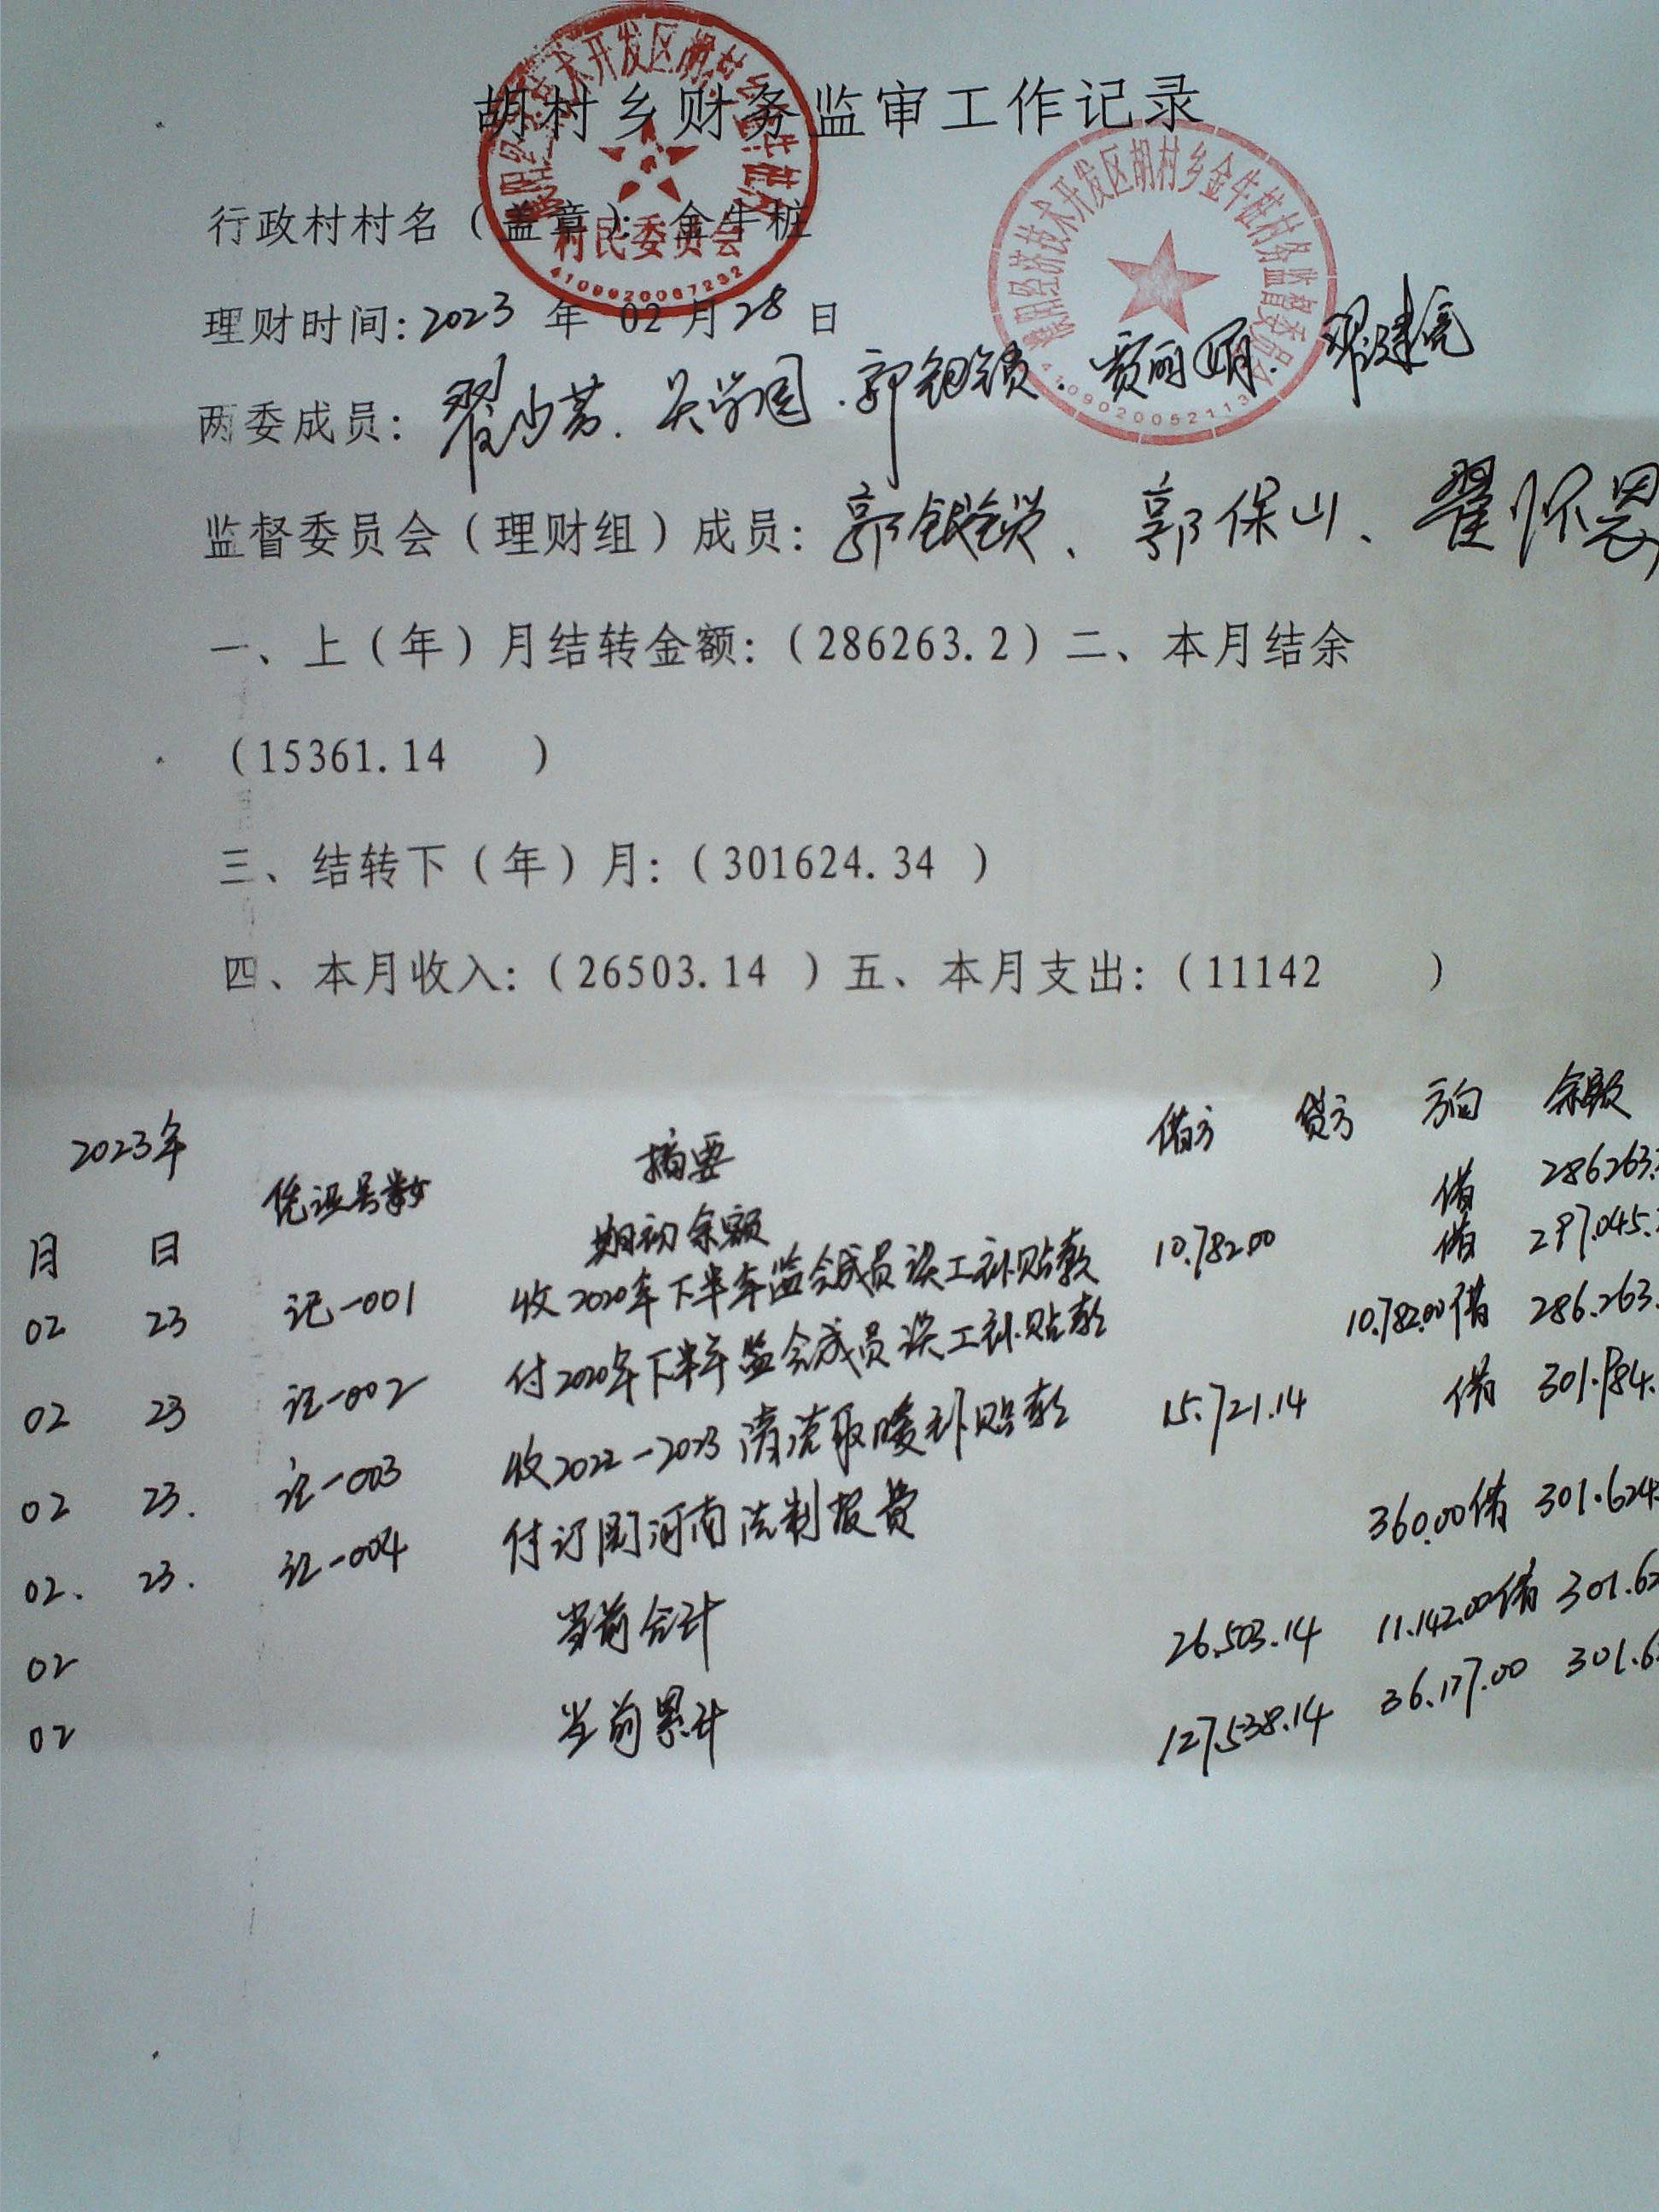 胡村乡财务监审工作记录
行政村村名（盖章）：金牛桩
村民委员会
4109920067232
濮阳经济技术开发区胡村乡金牛桩村务监督委员会
4109020052113
理财时间：2023 年 02 月 28 日
两委成员：翟少芳、吴学园、郭铜锁、贾丽娟、邓建亮
监督委员会（理财组）成员：郭银锁、郭保山、翟怀恩
一、上（年）月结转金额：（286263.2）二、本月结余
（15361.14 ）
三、结转下（年）月：（301624.34 ）
四、本月收入：（26503.14 ）五、本月支出：（11142 ）
2023年 凭证号数 摘要 借方 贷方 方向 余额
月 日 期初余额 借 286263.
02 23 记-001 收2020年下半年监会成员误工补贴款 10.782.00 借 297.045.
02 23 记-002 付2020年下半年监会成员误工补贴款 10.782.00 借 286.263.
02 23. 记-003 收2022-2023清洁取暖补贴款 15.721.14 借 301.984.
02. 23. 记-004 付订阅河南法制报费 360.00 借 301.624
02 当前合计 26.503.14 11.142.00 借 301.62
02 当前累计 127.538.14 36.177.00 301.6